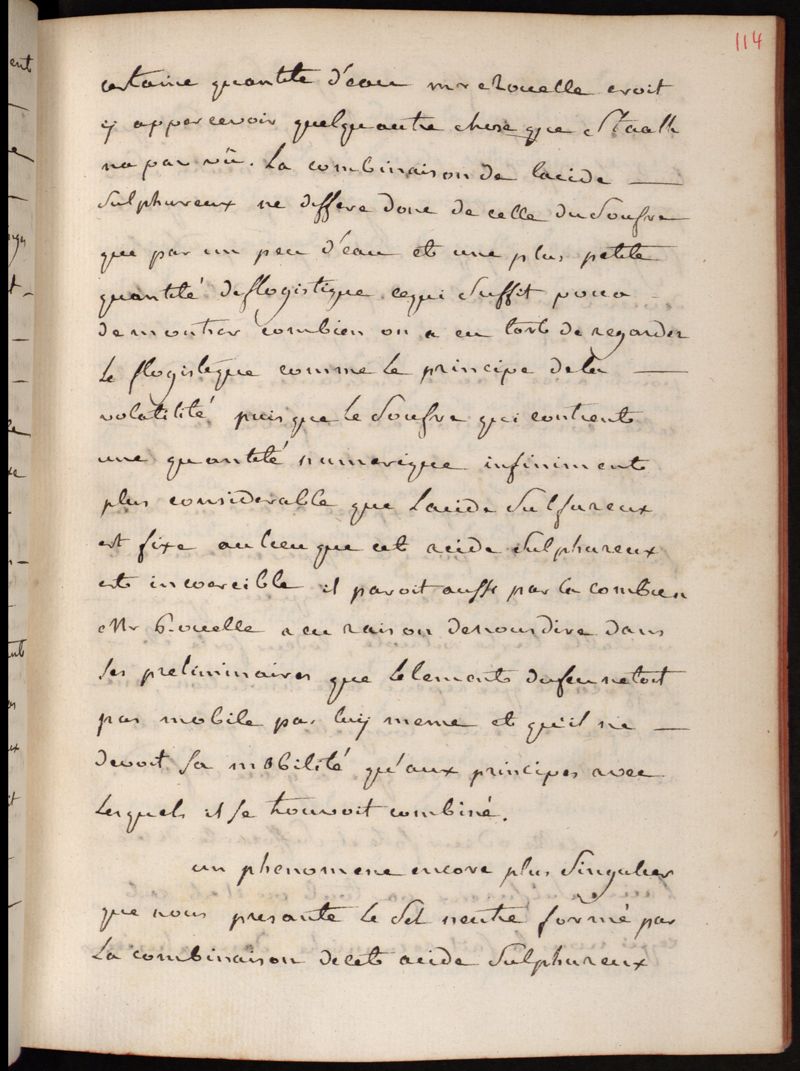 114
certaine quantité d'eau mr Rouelle croit
y appercevoir quelquautre chose que Staalh
na pas vû. La combinaison de lacide —
Sulphureux ne differe donc de celle du Soufre
que par un peu d'eau et une plus petite
quantité deflogistique cequi Suffit pour
demontrer combien on a eu tort de regarder
Le flogistique comme Le principe dela —
volatilité puis que le Soufre qui contient
une quantité numerique infiniment
plus considerable que Lacide Sulfureux
est fixe aulieu que cet acide Sulphureux
est incoercible il paroit aussi par la combien
Mr Rouelle a eu raison denous dire dans
Ses preliminaires que Lelement dufeu netoit
pas mobile par luy meme et qu'il ne —
devoit Sa mobilité qu'aux principes avec
Lesquels il Se trouvoit combiné.
un phenomene encore plus Singulier
que nous presante Le Sel neutre formé par
La combinaison decet acide Sulphureux